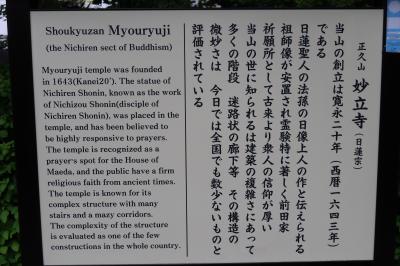 Shoukyuzan Myouryuji
(the Nichiren sect of Buddhism)
Myouryuji temple was founded
in 1643(Kanei20'). The statue of
Nichiren Shonin, known as the work
of Nichizou Shonin(disciple of
Nichiren Shonin), was placed in the
temple, and has been believed to
be highly responsive to prayers.
The temple is recognized as a
prayer's spot for the House of
Maeda, and the public have a firm
religious faith from ancient times.
The temple is known for its
complex structure with many
stairs and a mazy corridors.
The complexity of the structure
is evaluated as one of the few
constructions in the whole country.
正久山 妙立寺(日蓮宗)
当山の創立は寛永二十年(西暦一六四三年)
である
日蓮聖人の法孫の日像上人の作と伝えられる
祖師像が安置され霊験特に著しく前田家
祈願所として古来より衆人の信仰が厚い
当山の世に知られるは建築の複雑さにあって
多くの階段 迷路状の廊下等 その構造の
微妙さは 今日では全国でも数少ないものと
評価されている